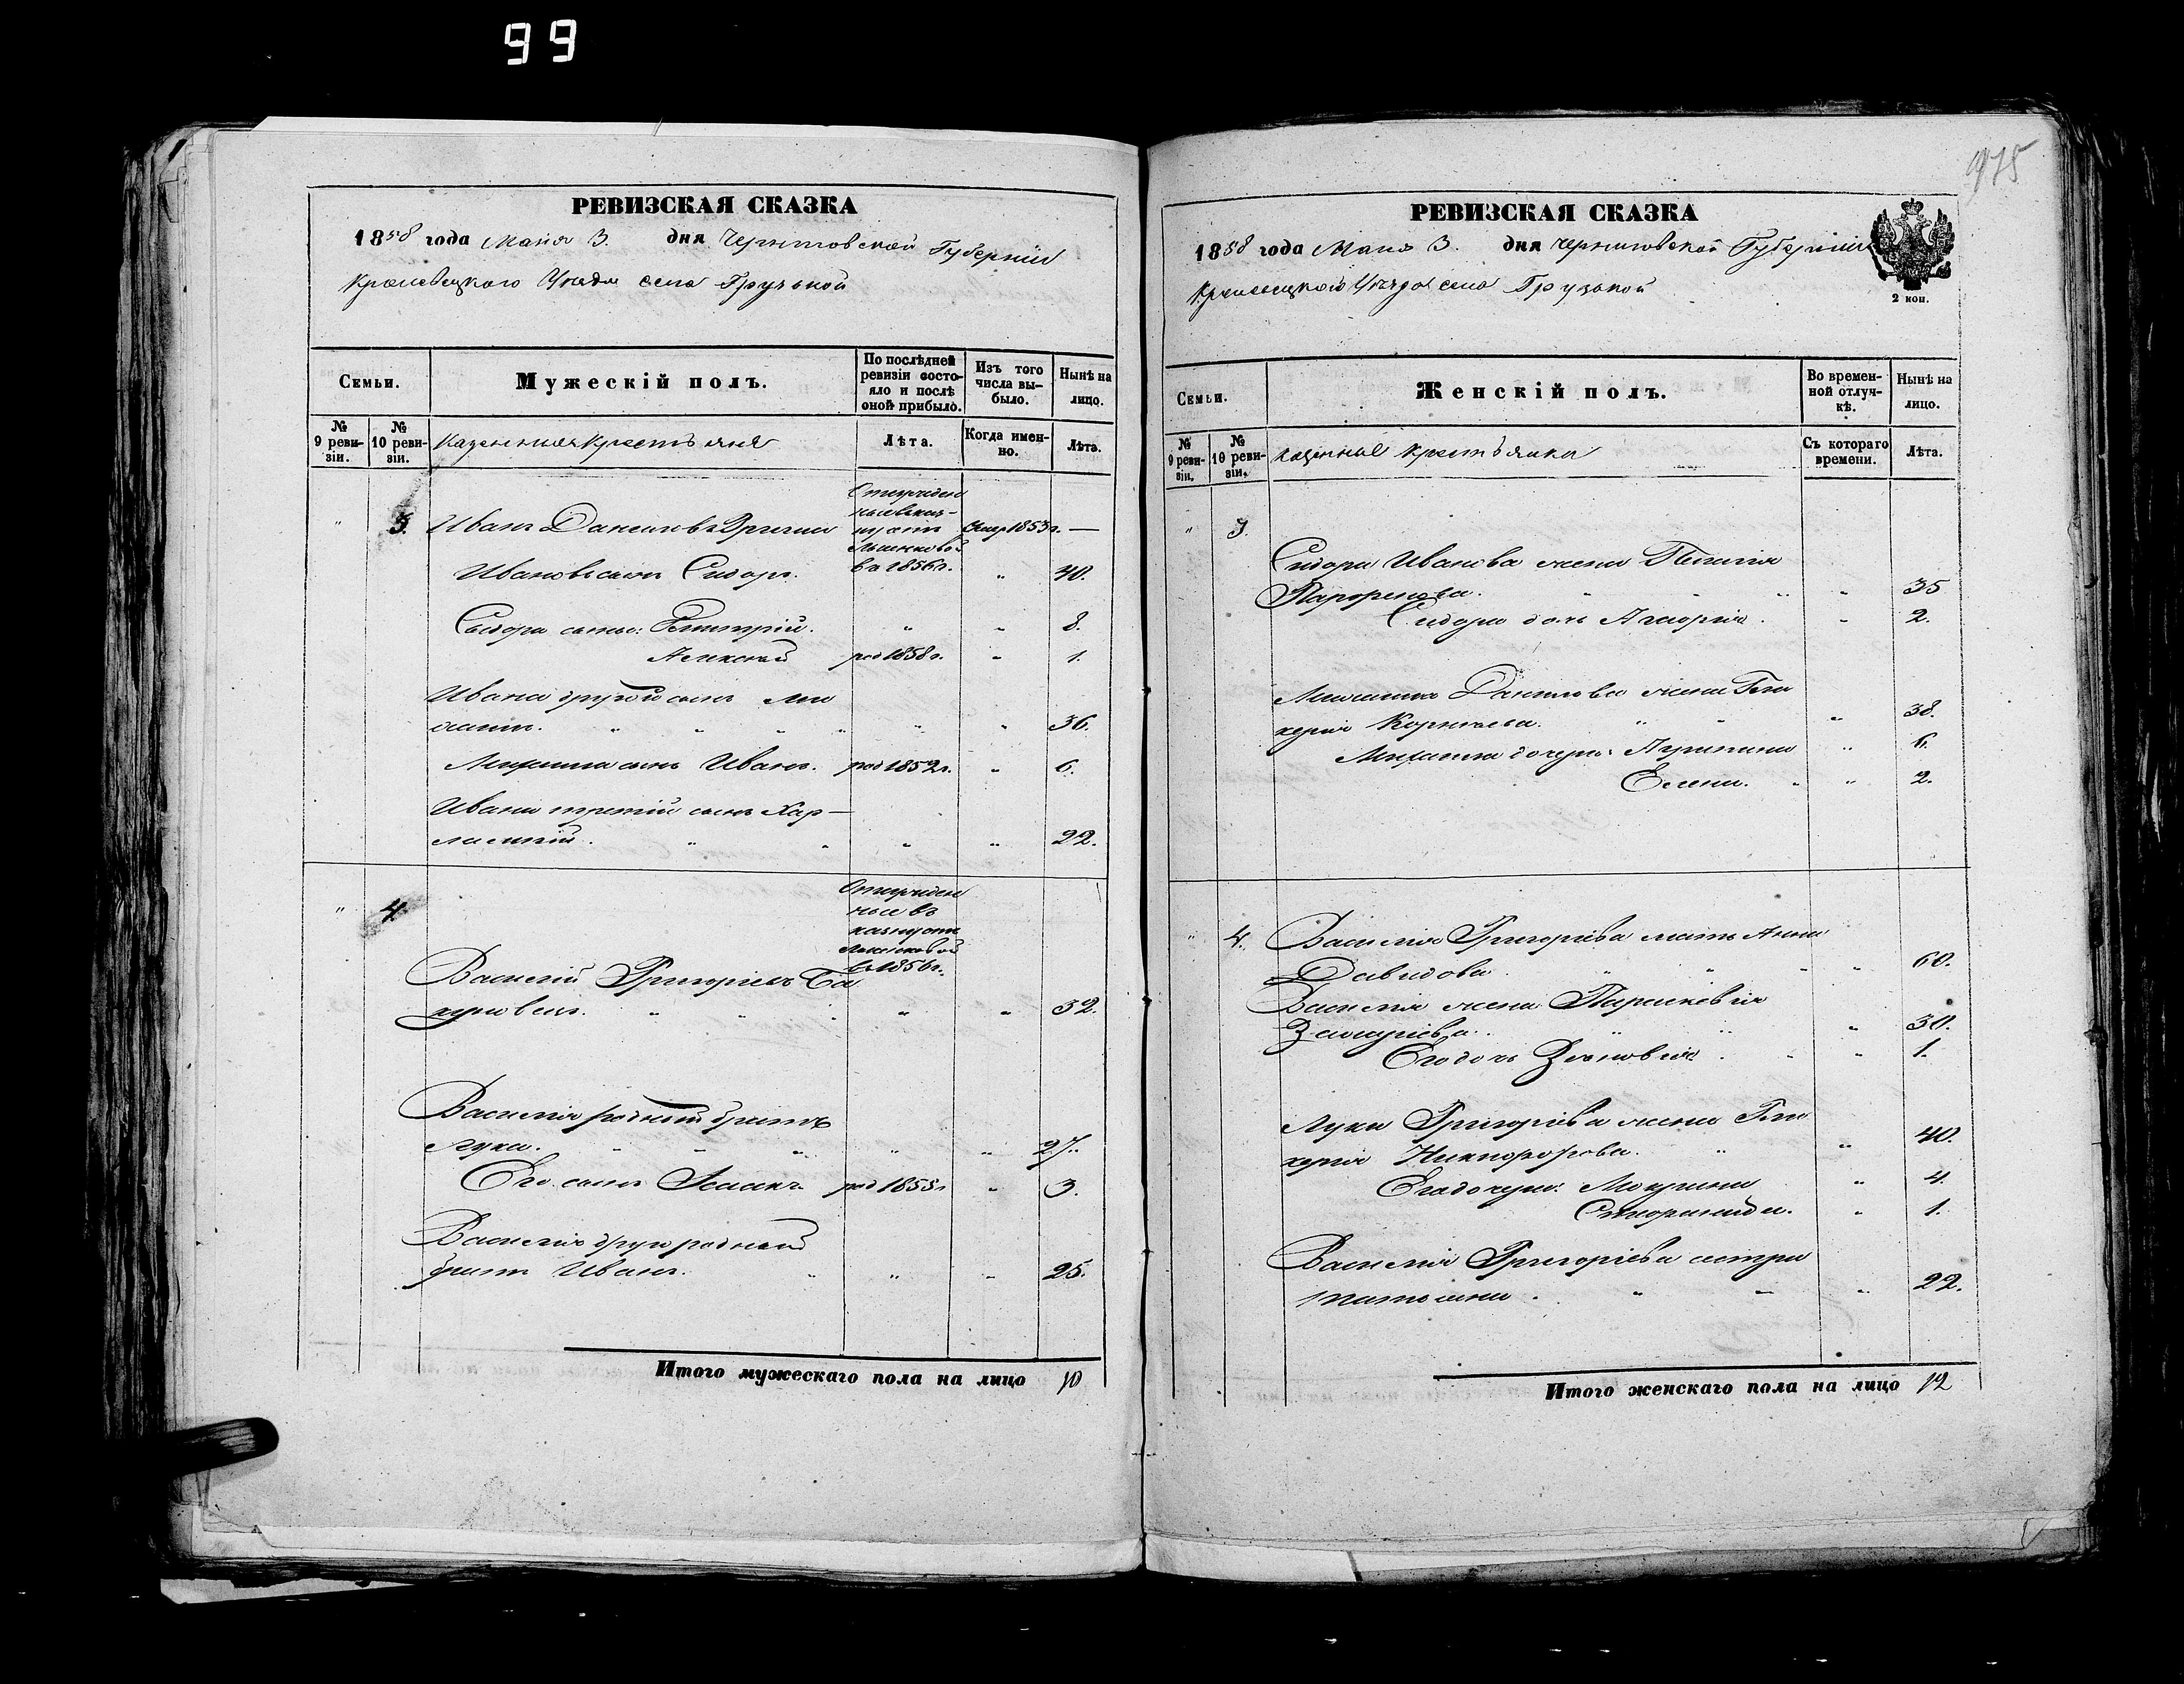 99
РЕВИЗСКАЯ СКАЗКА
1858 года Мая 3. дня Черниговской Губерніи
Кролевецкаго Уезда села Грузской
Семьи.
Мужескій полъ.
По послѣдней ревизіи состояло и послѣ оной прибыло.
Изъ того числа выбыло.
Нынѣ на лицо.
№ 9 ревизіи.
№ 10 ревизіи.
Казенныя Крестьяне
Лѣта.
Когда именно.
Лѣта.
" 3. Иванъ Даниловъ 1853г. —
в 1856г.
Ивановъ сынъ Сидоръ. " 40.
Сидора сынъ: Дмитрій. " " 8.
Алексѣй род 1858г. " 1.
Ивана другой сынъ Ми
" " 36.
сынъ Иванъ. род 1852г. " 6.
Ивана третій сынъ Хар-
лампій. " " 22.
" 4.
в 1856г.
Василій Григорьевъ
" " 32.
Василія родный братъ
Лука. " " 27.
Его сынъ Исаакъ род 1855г " 3.
Василія другой родный
братъ Иванъ. " " 25.
Итого мужескаго пола на лицо 10
975
РЕВИЗСКАЯ СКАЗКА
1858 года Мая 3. дня Черниговской Губерніи
Кролевецкаго Уезда села Грузской
2 коп.
Семьи.
Женскій полъ.
Во временной отлучкѣ.
Нынѣ на лицо.
№ 9 ревизіи.
№ 10 ревизіи.
Казенныя крестьянки
Съ котораго времени.
Лѣта.
" 3.
Сидора Иванова жена Пелагія
Парфенова. " 35
Сидора дочь " 2.
жена Гли
керія Корнѣева. " 38.
дочери: Агрипина " 6.
Елена. " 2.
" 4. Василія Григорьева мать Анна
Давидова " 60.
Василія жена Параскевія
Захаріева. " 30.
Его дочь Зиновія " 1.
Луки Григорьева жена Гли
керія Никифорова. " 40.
Его дочери: Мокрина " 4.
" 1.
Василія Григорьева сестра
Татьяна. " 22.
Итого женскаго пола на лицо 12